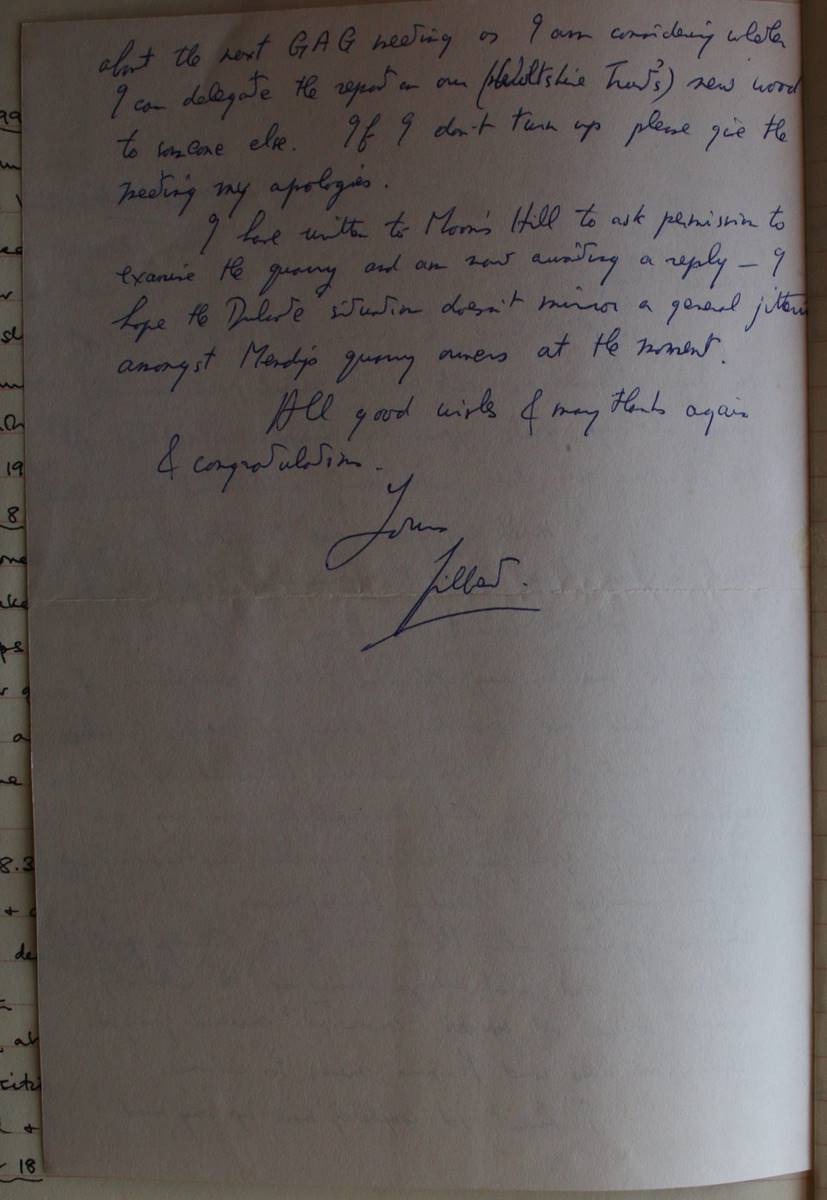 about the next GAG meeting as I am considering whether
I can delegate the report on our (Wiltshire Trust's) new wood
to someone else. If I don't turn up please give the
meeting my apologies.
I have written to Moon's Hill to ask permission to
examine the quarry and am now awaiting a reply – I
hope the Dulcote situation doesn't mirror a general jitters
amongst Mendip quarry owners at the moment.
All good wishes & many thanks again
& congratulations.
Yours
Gilbert.
99
19
8
a
8.3
de
18